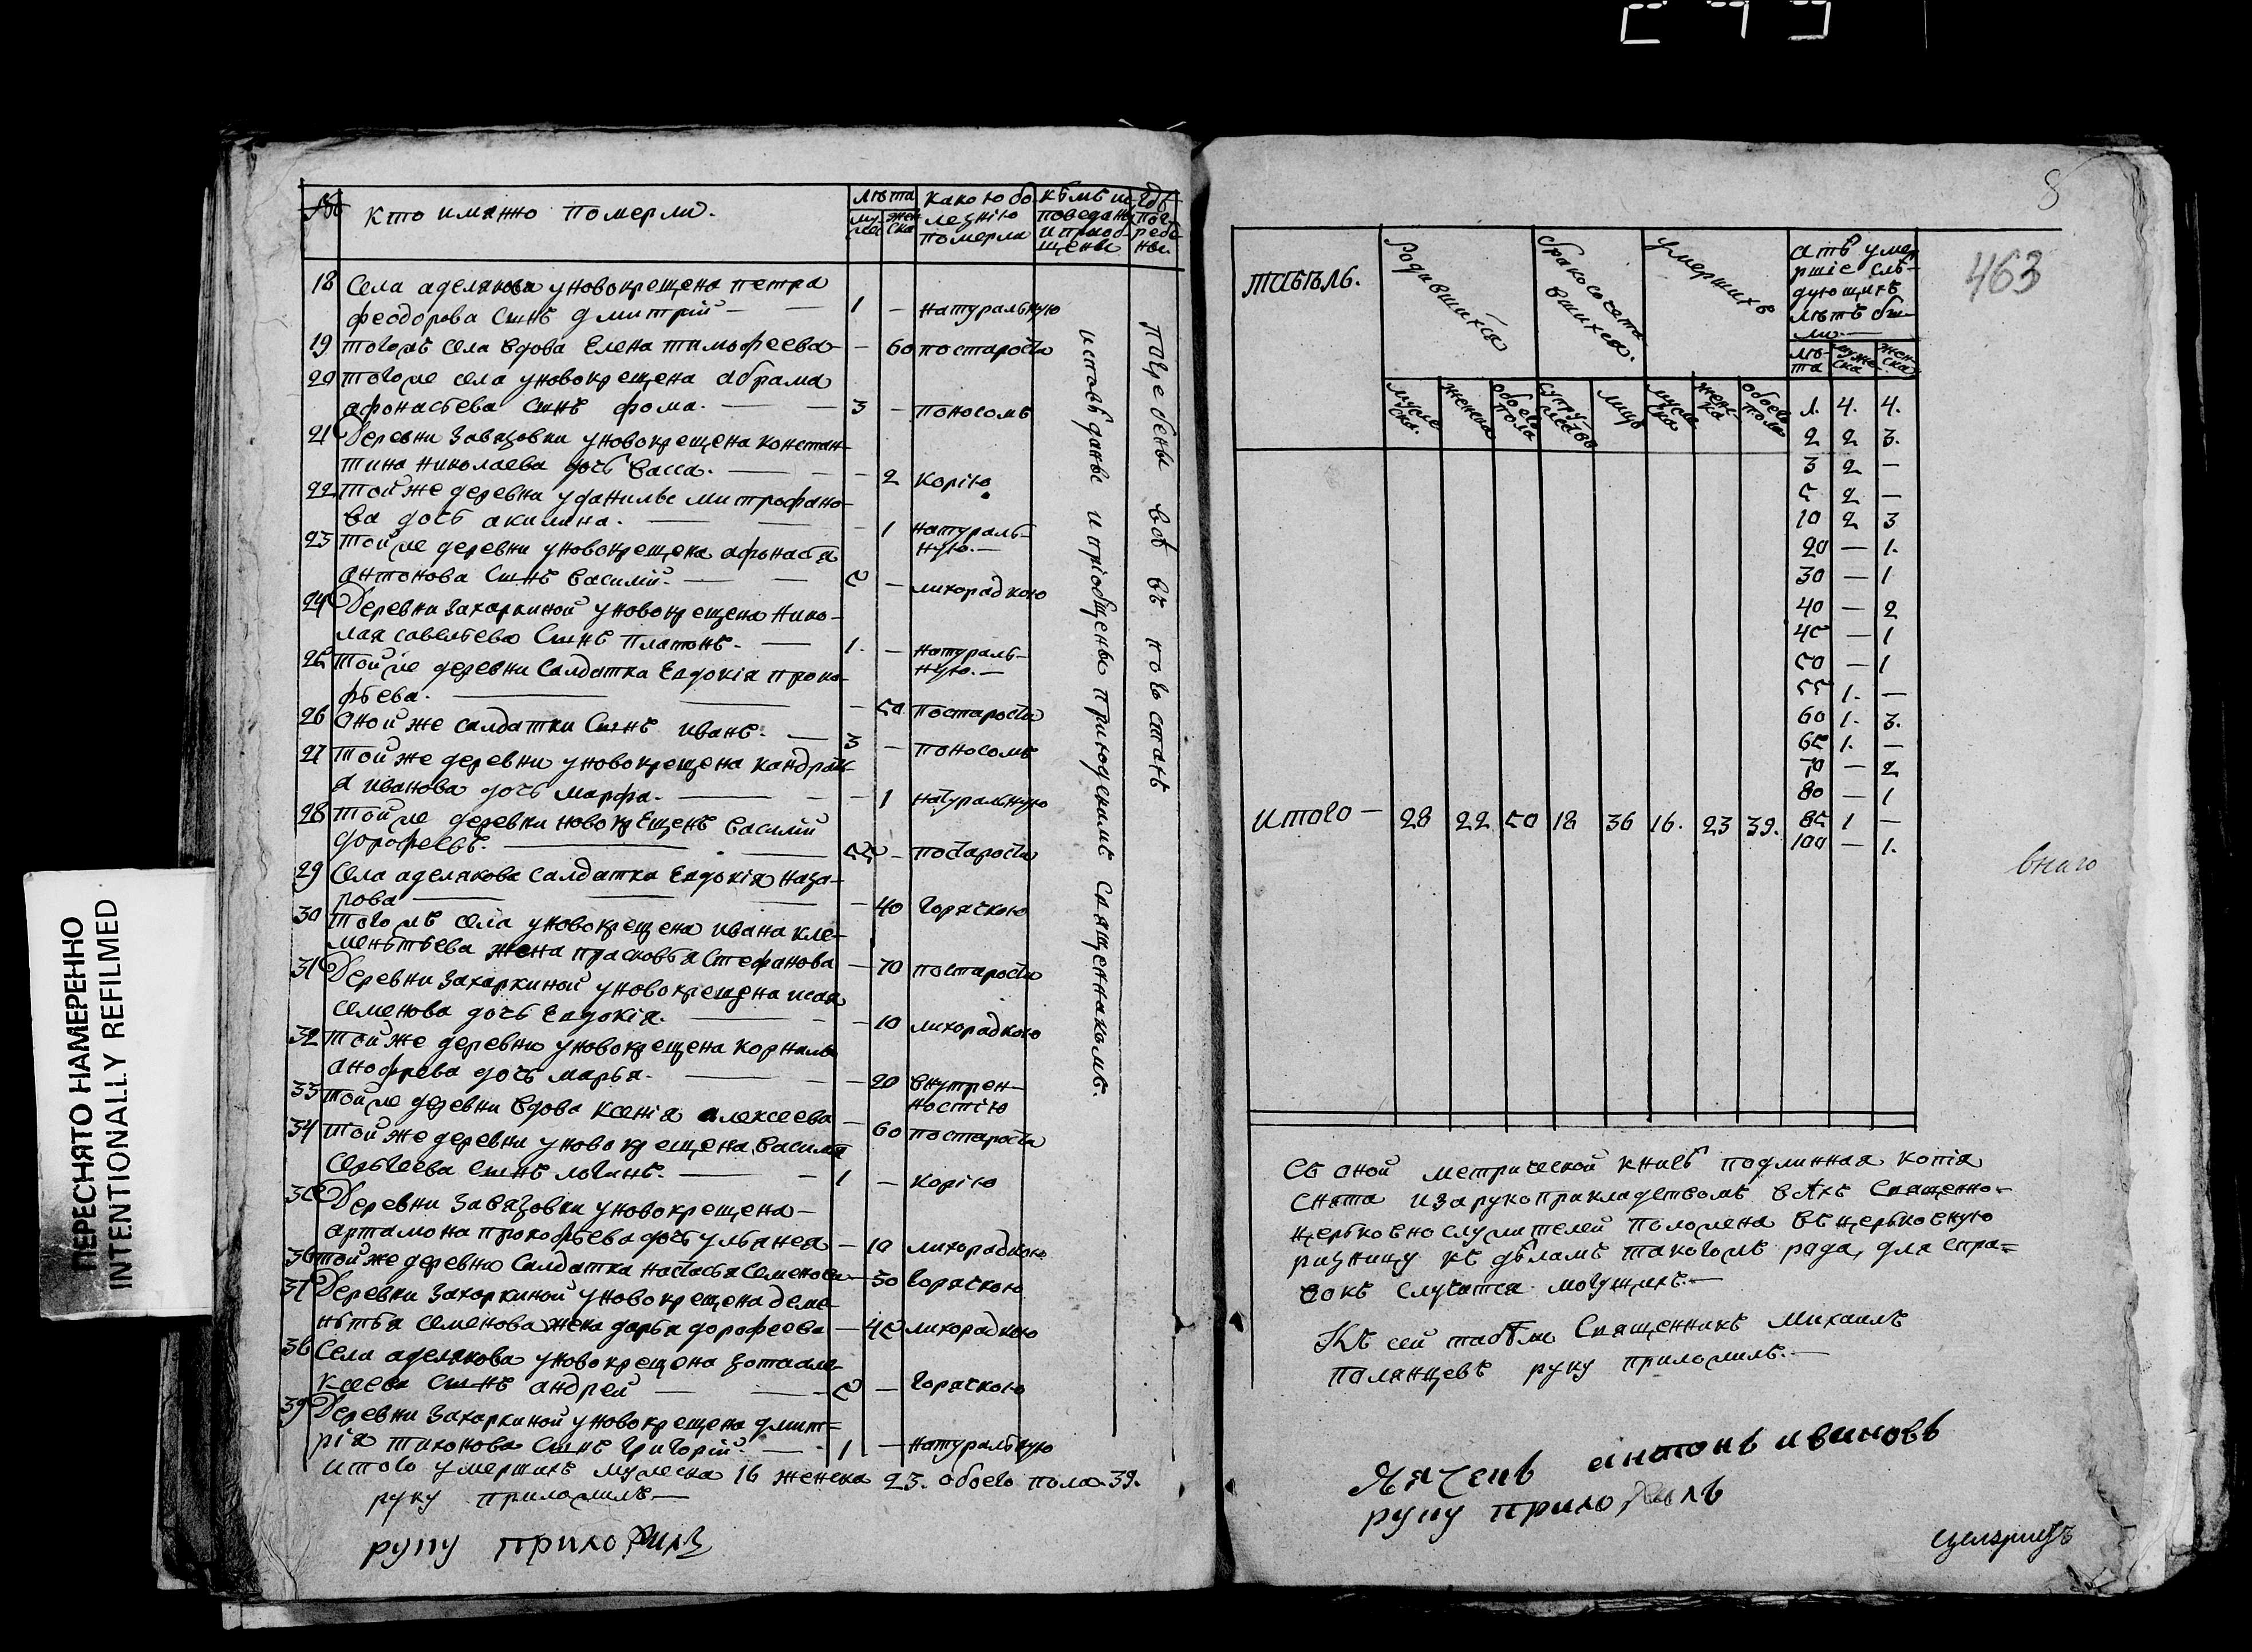 №
Кто имянно померли.
лѣта
муж жен
ска
Какою бо
лезнію
померли
Кѣмъ ис
поведаны
и приоб
щены
гдѣ
пог
ребе
ны.
18 Села аделякова уновокрещена петра
феодорова сынъ дмитрій — — 1 — натуральную
19 тогожъ села вдова Елена тимофеева — 60 постарости
20 тогоже села уновокрещена абрама
афонасьева сынъ фома. — — 3 — поносомъ
21 Деревни Завязовки уновокрещена констан-
тина николаева дочь васса. — — — 2 Корію
22 той же деревни уданилы митрофано-
ва дочь акилина. — — — 1 натураль-
ную.—
23 тойже деревни уновокрещена афонасья
антонова сынъ василій. — — 5 — лихорадкою
24 Деревни захаркиной уновокрещена Нико-
лая савельева сынъ Платонъ. — 1. — натураль-
ную.—
25 тойже деревни Салдатка Евдокія проко-
фьева. — — — 50 постарости
26 оной же салдатки сынъ иванъ. — 3 — поносомъ
27 той же деревни уновокрещена кандрать-
я иванова дочь марфа. — — — 1 натуральную
28 тойже деревни новокрещенъ василій
дорофеевъ. — — 55 — постарости
29 Села аделякова салдатка Евдокія наза-
рова — — — 40 горячкою
30 тогожъ села уновокрещена ивана кле-
меньтьева жена прасковья Стефанова — 70 постарости
31 Деревни захаркиной уновокрещена исая
семенова дочь Евдокія. — — — 10 лихорадкою
32 той же деревни уновокрещена корнилы
анофрева дочь марья. — — — 20 внутрен-
ностію
33 тойже деревни вдова ксенія алексеева — 60 постарости
34 той же деревни уновокрещена василья
сергеева сынъ логинъ. — — 1 — Корію
35 Деревни завязовки уновокрещена—
артамона прокофьева дочь ульянея — 10 лихорадкою
36 той же деревни Салдатка настасья семенова — 30 горячкою
37 Деревни захаркиной уновокрещена деме-
ньтья семенова жена дарья дорофеева — 45 лихорадкою
38 Села аделякова уновокрещена изотаале-
ксеева сынъ андрей — — 5 — горячкою
39 Деревни Захаркиной уновокрещена дмит-
рія тихонова сынъ григорій. — 1 — натуральную
итого умершихъ мужеска 16 женска 23. обоего пола 39.
руку приложилъ—
руку приложилъ
исповѣданы и приобщены приходскимъ священникомъ.
погребены воѣ въ погостѣ
8
463
табѣль.
Родившихся
бракосочета
вшихся.
умершихъ
отъ умер
ршіе слѣ-
дующихъ
лѣтъ бы-
ли—
мужес
ска.
женска
обоего
пола
супру
жествъ
лицъ
мужес
ска
женс
ка
обоего
пола
лѣ-
та
муже
ска
жен-
ска
1. 4. 4.
2 2 3.
3 2 —
5 2 —
10 2 3
20 — 1.
30 — 1
40 — 2
45 — 1
50 — 1
55 1. —
60 1. 3.
65 1. —
70 — 2
80 — 1
85 1 —
100 — 1.
итого — 28 22 50 18 36 16. 23 39.
Съ оной метрической книгѣ подлинная копія
снята изарукоприкладствомъ всѣхъ священно-
церковнослужителей положена въ церьковную
ризницу къ дѣламъ такогожъ рада, для спра=
вокъ случатся могущихъ.—
Къ сей табѣли Священникъ Михаилъ
полянцевъ руку приложилъ.—
Дячекъ антонъ ивановъ
руку приложилъ
ПЕРЕСНЯТО НАМЕРЕННО
INTENTIONALLY REFILMED